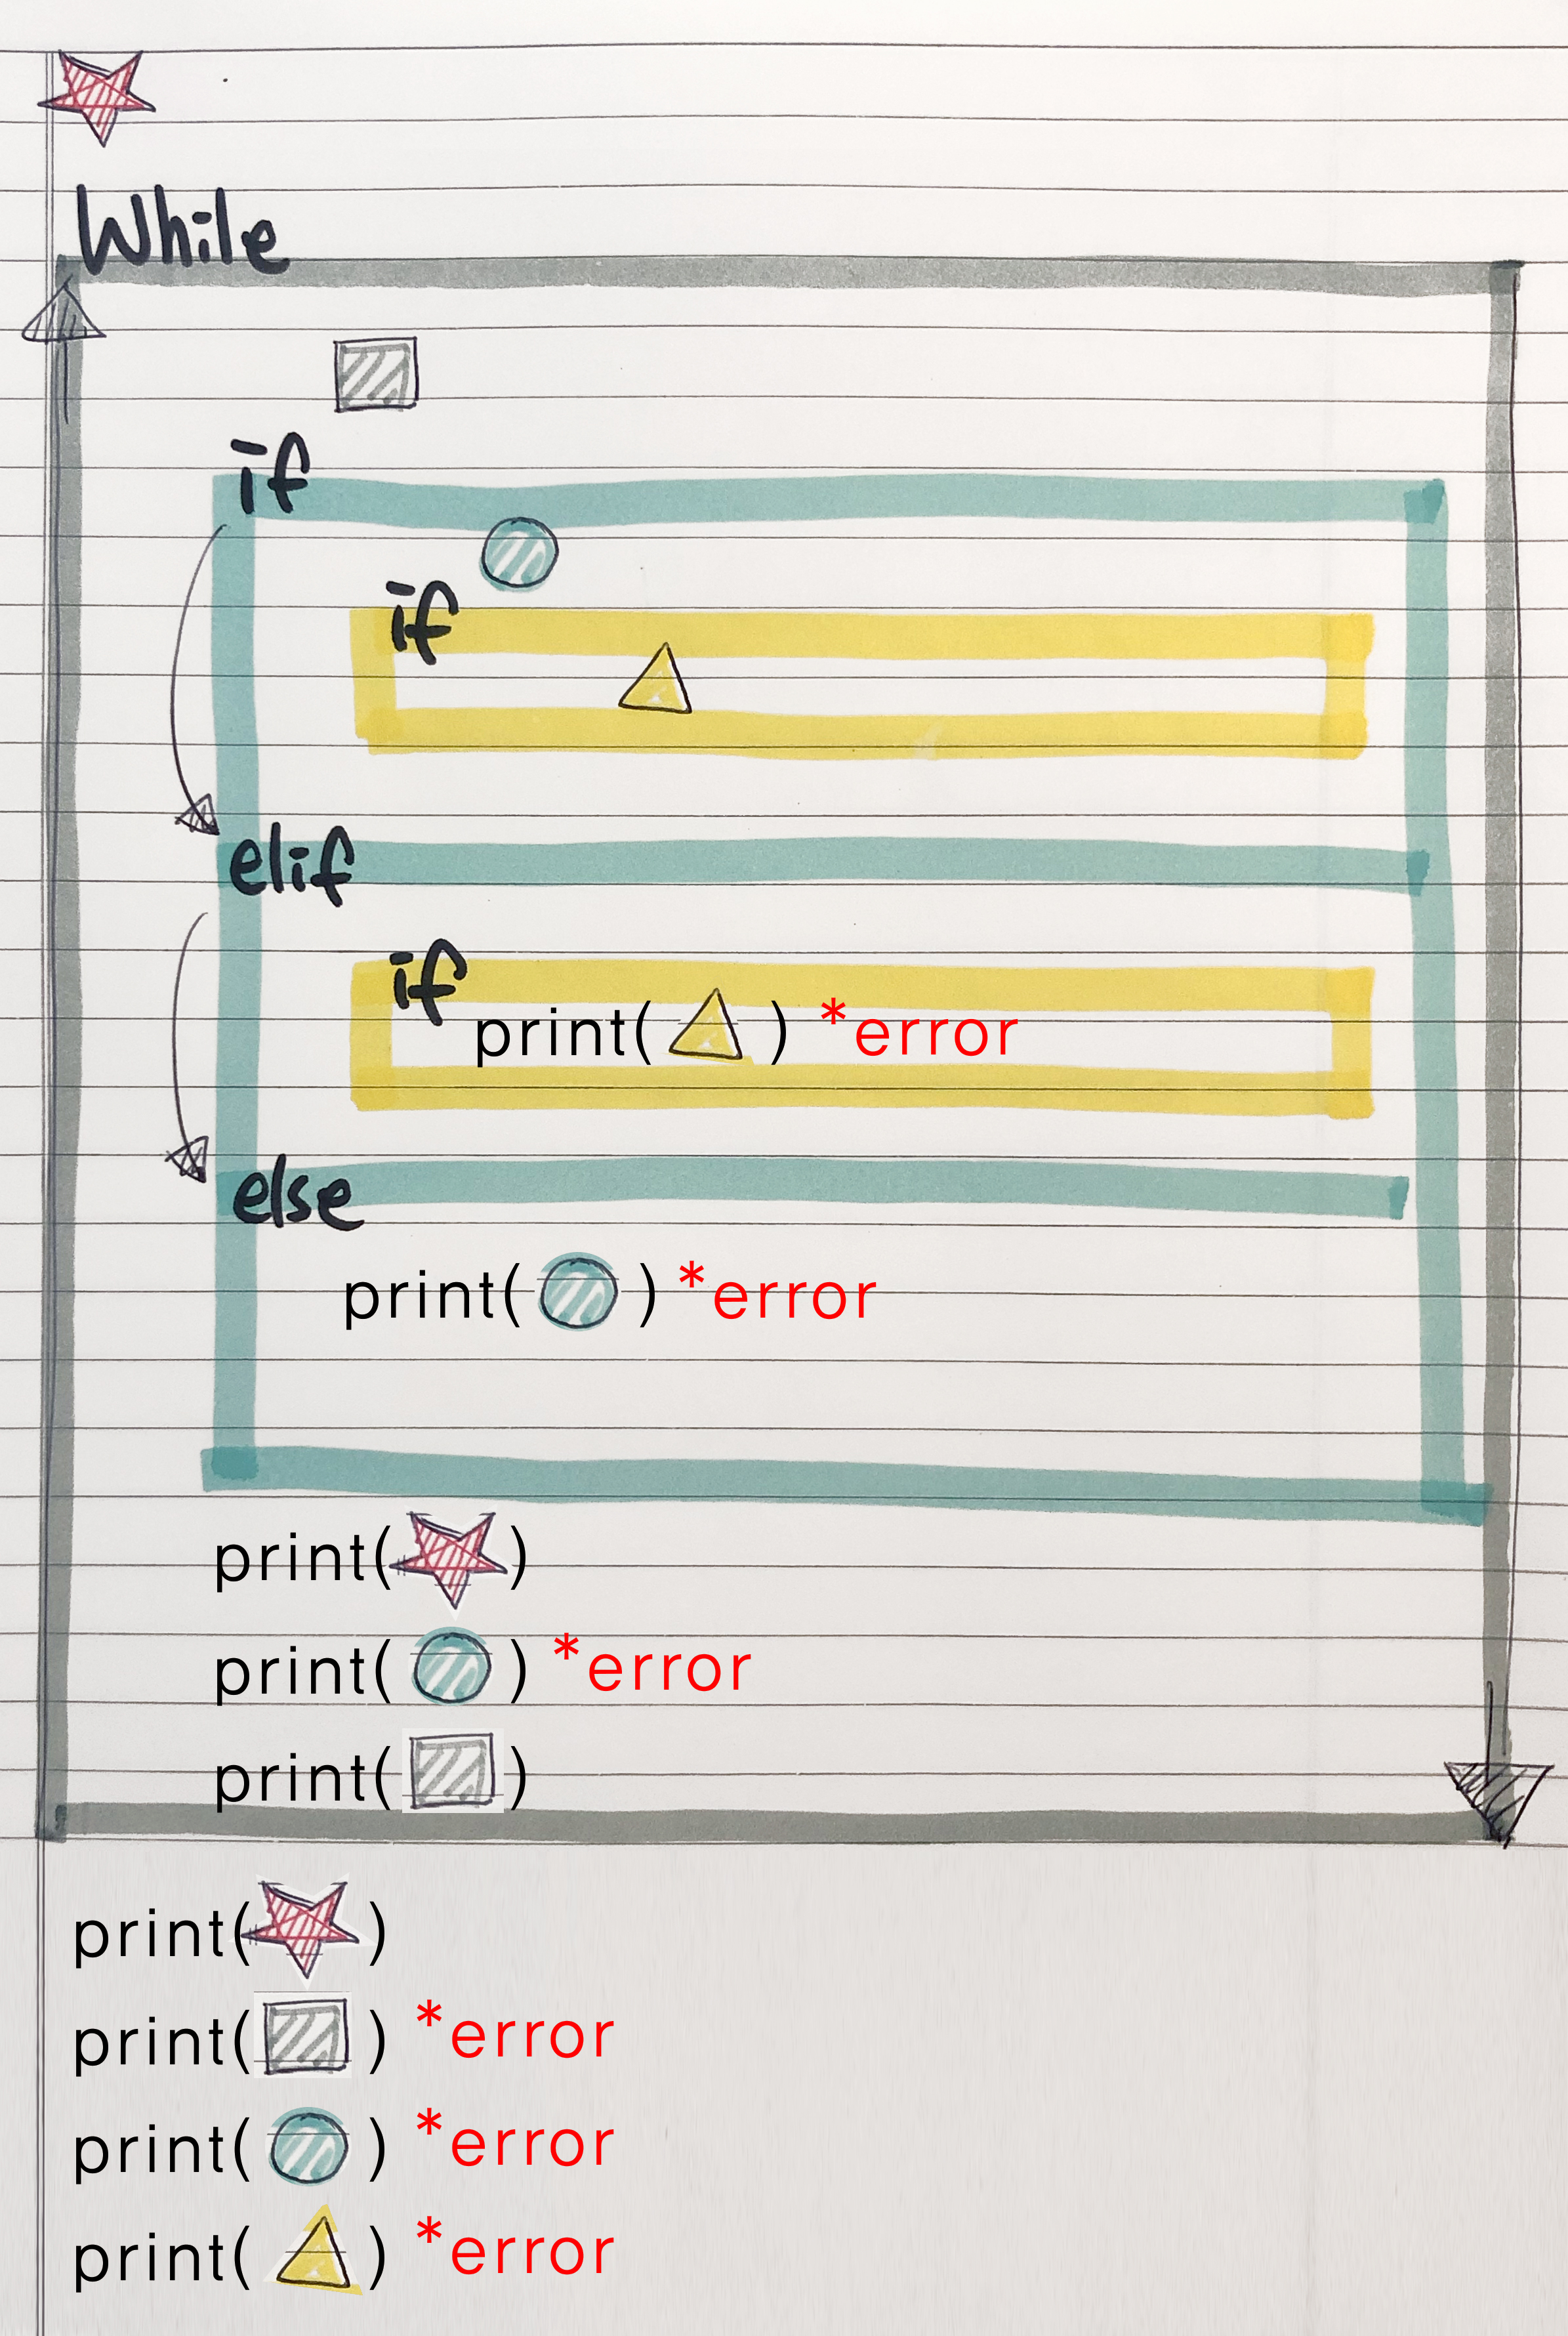 While
if
if
elif
if
print( ) *error
else
print( ) *error
print( )
print( ) *error
print( )
print( )
print( ) *error
print( ) *error
print( ) *error